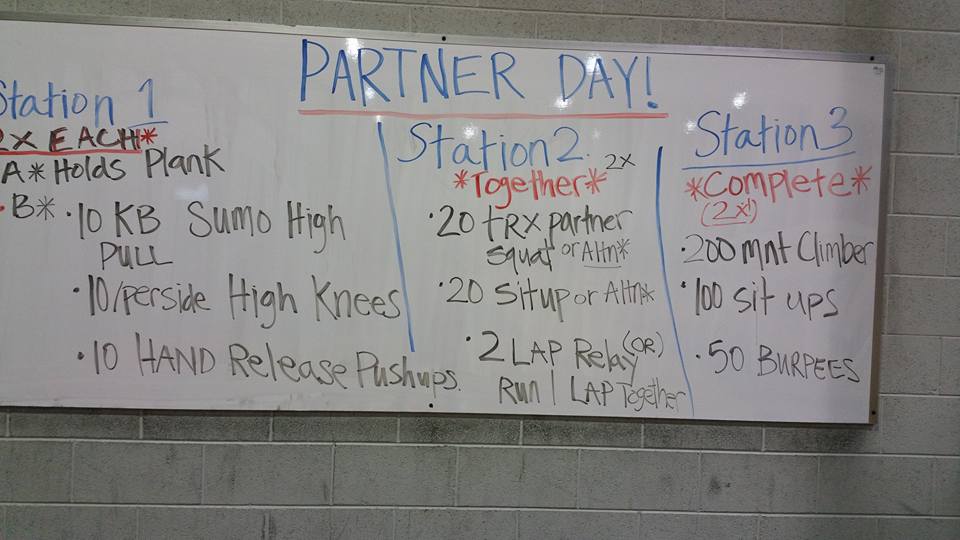 PARTNER DAY!
Station 1
2X EACH*
A* Holds Plank
B* • 10 KB Sumo High
PULL
• 10/perside High Knees
• 10 HAND Release Pushups.
Station 2.
*Together* 2x
• 20 tRX partner
squat or Altn*
• 20 Situp or Altn*
• 2 LAP Relay (OR)
Run 1 LAP Together
Station 3
*Complete*
(2x!)
• 200 mnt Climber
• 100 sit ups
• 50 BURPEES